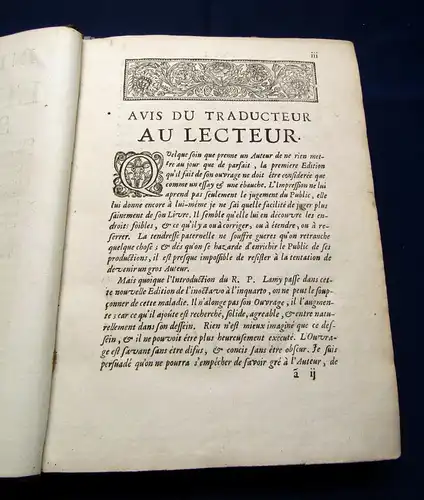 iij
AVIS DU TRADUCTEUR
AU LECTEUR.
QUelque soin que prenne un Auteur de ne rien met-
tre au jour que de parfait, la premiere Edition
qu'il fait de son ouvrage ne doit être considerée que
comme un essay & une ébauche. L'Impression ne lui
aprend pas seulement le jugement du Public, elle
lui donne encore à lui-même je ne sai quelle facilité de juger plus
sainement de son Livre. Il semble qu'elle lui en découvre les en-
droits foibles, & ce qu'il y a ou à corriger, ou à étendre, ou à re-
serrer. La tendresse paternelle ne souffre gueres qu'on retranche
quelque chose; & dés qu'on se hazarde d'enrichir le Public de ses
productions, il est presque impossible de resister à la tentation de
devenir un gros Auteur.
Mais quoique l'Introduction du R. P. Lamy passe dans cet-
te nouvelle Edition de l'inoctavo à l'inquarto, on ne peut le soup-
çonner de cette maladie. Il n'alonge pas son Ouvrage, il l'augmen-
te; car ce qu'il ajoute est recherché, solide, agreable, & entre natu-
rellement dans son dessein. Rien n'est mieux imaginé que ce des-
sein, & il ne pouvoit être plus heureusement executé. L'Ouvra-
ge est sçavant sans être difus, & concis sans être obscur. Je suis
persuadé qu'on ne pourra s'empêcher de sçavoir gré à l'Auteur, de
ã ij